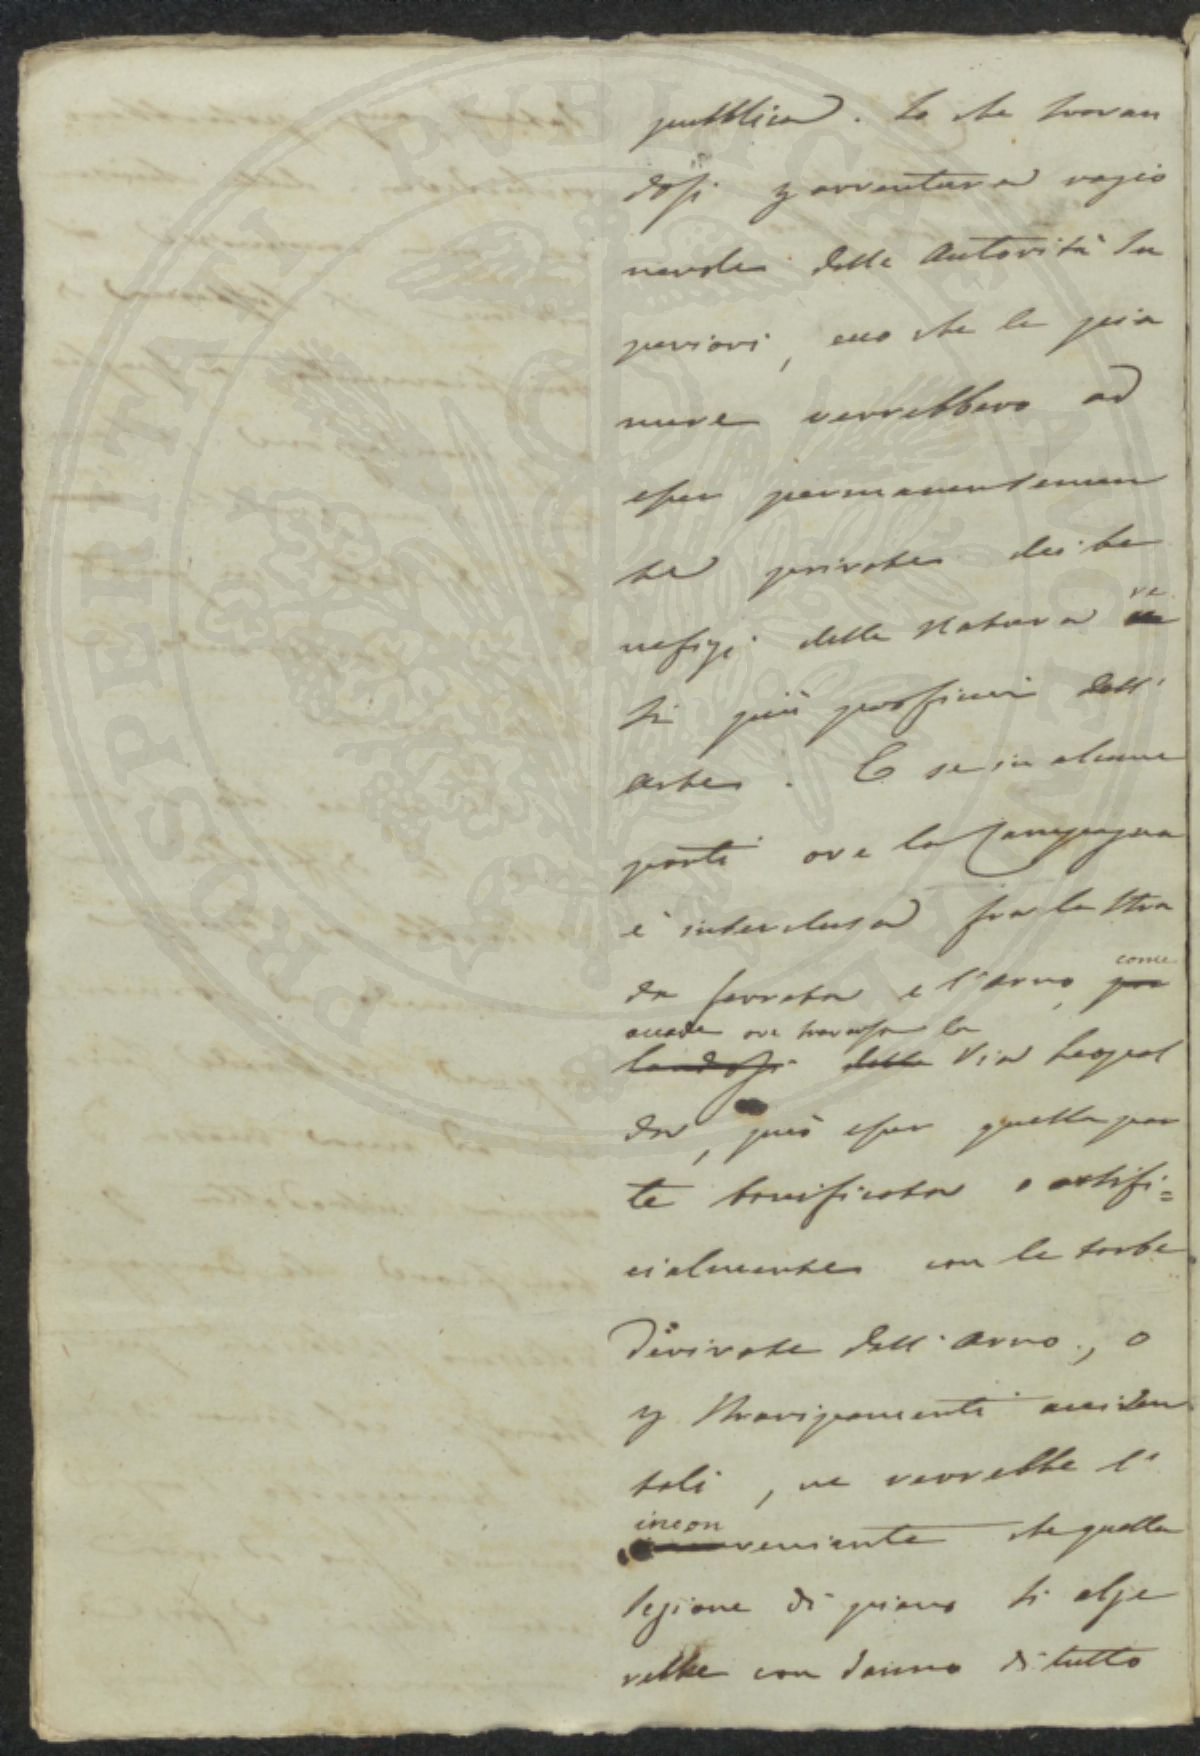 pubblica. Lo che trovan
dosi p avventura ragio
nevole dalle Autorità Su
periori, ecco che le pia
nure verrebbero ad
esser permanentemen
te private dei be
nefizi della Natura re
si più proficui dall'
arte. E se in alcune
parti ove la Campagna
è interclusa fra la Stra
da ferrata e l'Arno, come
accade ove traversa la
Via Leopol
da, può esser quella par
te bonificata o artifi=
cialmente con le torbe
derivate dall'Arno, o
p Straripamenti acciden
tali, ne verrebbe l'
inconveniente che quella
sezione di piano si alze
rebbe con danno di tutto
PROSPERITATI PVBLICAE AVGENDAE